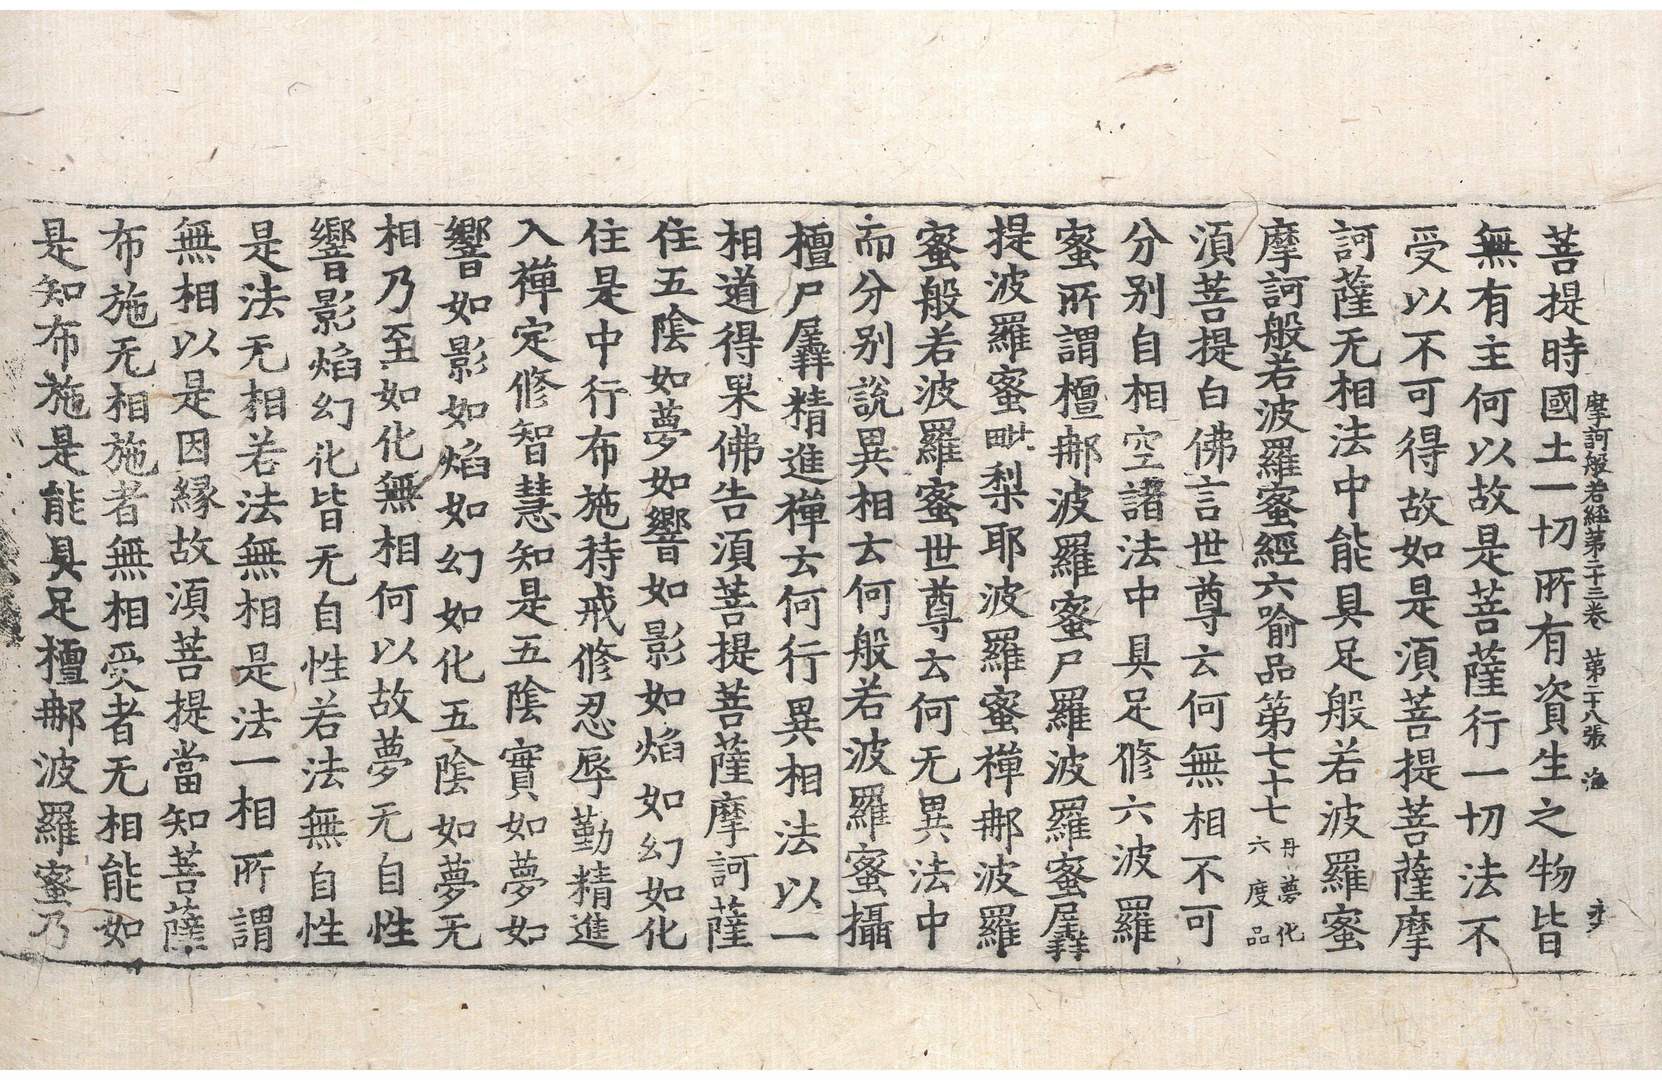 摩訶般若經苐二十三卷 苐二十八張 海
菩提時國土一切所有資生之物皆
無有主何以故是菩薩行一切法不
受以不可得故如是須菩提菩薩摩
訶薩无相法中能具足般若波羅蜜
摩訶般若波羅蜜經六喻品第七十七 丹夢化
六度品
須菩提白佛言世尊云何無相不可
分别自相空諸法中具足修六波羅
蜜所謂檀那波羅蜜尸羅波羅蜜羼
提波羅蜜毗梨耶波羅蜜禪那波羅
蜜般若波羅蜜世尊云何无異法中
而分别說異相云何般若波羅蜜攝
檀尸羼精進禪云何行異相法以一
相道得果佛告須菩提菩薩摩訶薩
住五陰如夢如響如影如焰如幻如化
住是中行布施持戒修忍辱勤精進
入禪定修智慧知是五陰實如夢如
響如影如焰如幻如化五陰如夢无
相乃至如化無相何以故夢无自性
響影焰幻化皆无自性若法無自性
是法无相若法無相是法一相所謂
無相以是因緣故須菩提當知菩薩
布施无相施者無相受者无相能如
是知布施是能具足檀那波羅蜜乃